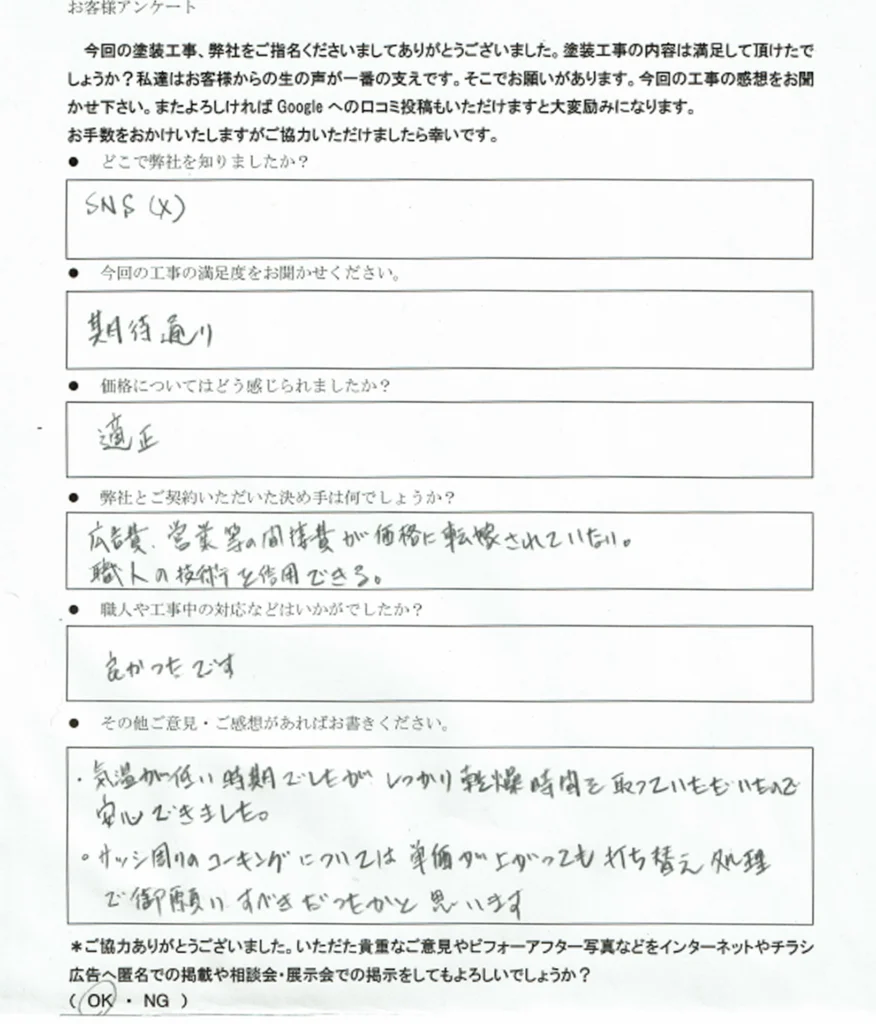 お客様アンケート
今回の塗装工事、弊社をご指名くださいましてありがとうございました。塗装工事の内容は満足して頂けたで
しょうか？私達はお客様からの生の声が一番の支えです。そこでお願いがあります。今回の工事の感想をお聞
かせ下さい。またよろしければ Google への口コミ投稿もいただけますと大変励みになります。
お手数をおかけいたしますがご協力いただけましたら幸いです。
● どこで弊社を知りましたか？
SNS (X)
● 今回の工事の満足度をお聞かせください。
期待通り
● 価格についてはどう感じられましたか？
適正
● 弊社とご契約いただいた決め手は何でしょうか？
広告費、営業等の間接費が価格に転嫁されていない。
職人の技術を信用できる。
● 職人や工事中の対応などはいかがでしたか？
良かったです
● その他ご意見・ご感想があればお書きください。
・気温が低い時期でしたがしっかり乾燥時間を取っていただいたので
安心できました。
。サッシ周りのコーキングについては単価が上がっても打ち替え処理
で御願いすべきだったかと思います
＊ご協力ありがとうございました。いただた貴重なご意見やビフォーアフター写真などをインターネットやチラシ
広告へ匿名での掲載や相談会・展示会での掲示をしてもよろしいでしょうか？
（ OK ・ NG ）